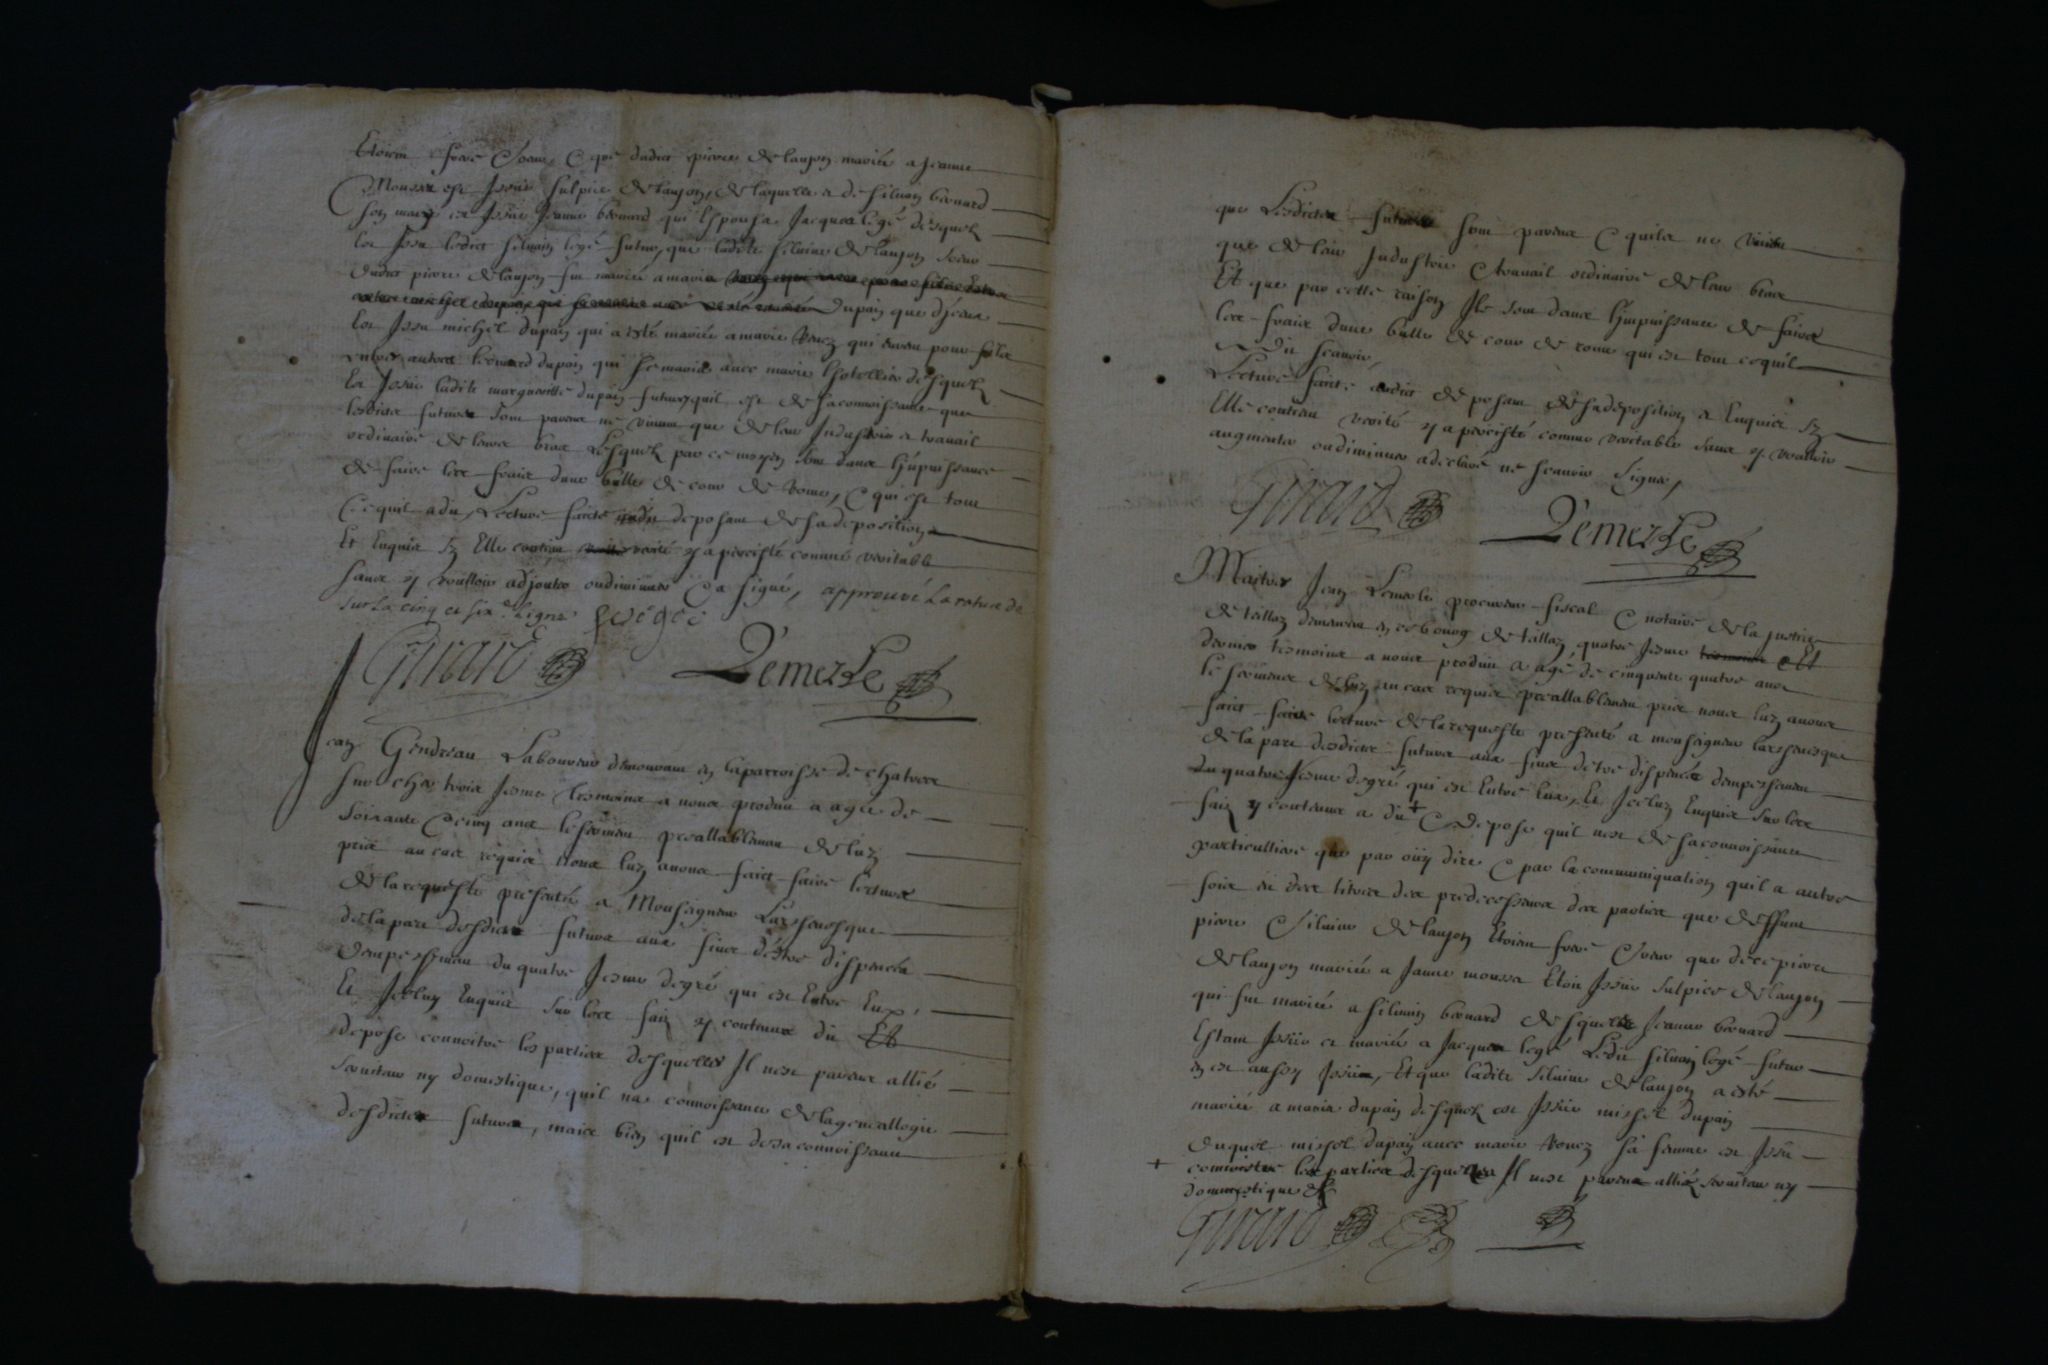 Etoien frere & soeur, & que dudict pierre delanjon mariée a jeanne
Moussa est Issüe sulpice delanjon, de laquelle & de siluain bernard
son mary est Issüe Jeanne bernard qui Espousa Jacques legé desquelz
est Issu ledict siluain legé futur, que ladite siluine delanjon soeur
dudict pierre delanjon fut mariée a marin
dupain que d'jceux
est Issu michel dupain qui a esté mariée a marie Renez qui eurent pour filz
entres autres leonard dupain qui se maria auec marie lhotellier desquelz
Est Issüe ladite margueritte dupain future, quil est de sa connoissance que
lesdicts futures sont paures ne viuant que de leur Industrie & trauail
ordinaire de leurs bras Lesquelz par ce moyen sont dans lJmpuissance
de faire les fraix dune bulle de cour de Rome, & qui est tout
Ce quil a dit, Lecture faicte audit deposant de sa deposition
Et Enquis sy Elle contien verité y a percisté comme veritable
sans y voulloir adjouter ou diminuer & a signé, approuué la rature de
sur la cinq et six.e ligne
Girard Lemerle
Jean Gendreau Laboureur demeurant en la parroisse de chatres
sur cher troisiesme tesmoins a nous produit & agée de
soixante & cinq ans le serment preallablement de luy
pris au cas requis nous luy auons faict faire lecture
de la requeste presentée a Monseigneur Larcheuesque
de la part desdicts futures aux fins destre dispencés
dempeschement du quatriesme degré qui est Entre Eux,
Et Jceluy Enquis sur les faiz y contenus dit Et
depose connoitre les parties desquelles Il nest parens allié
seruiteur ny domestique, quil na connoissance de la geneallogie
desdictes futures, mais bien quil est de sa connoissance
que Lesdictes futures sont paures & quils ne viuent
que de leur Industrie & trauail ordinaire de leur bras
Et que par cette raison Ils sont dans lJmpuissance de faire
les fraix dune bulle de cour de rome qui est tout ce quil
a dit scauoir,
Lecture faicte audict deposant de sa deposition & Enquis sy
Elle contien verité y a percisté comme veritable sans y voulloir
augmenter ou diminuer a declaré ne scauoir signer,
Girard Lemerle
Maitre Jean Lemerle procureur fiscal & notaire de la justice
de tillay demeurant en ce bourg de tillay, quatriesme & Et
dernier tesmoins a nous produit & agé de cinquante quatre ans
le serment de luy au cas requis preallablement pris nous luy auons
faict faire lecture de la requeste presentée a monseigneur larcheuesque
de la part desdicts futures aux fins destre dispencés dempeschement
du quatriesme degré qui est Entre Eux, Et Jceluy Enquis sur les
faiz y contenus a dit + & depose quil nest de sa connoissance
particulliere que par oüy dire & par la communiquation quil a autre
fois eü des titres des predecesseurs des parties que deffunt
pierre & siluine delanjon Etoien frere & soeur que de ce pierre
delanjon mariée a Janne moussa Etoit Issüe sulpice delanjon
qui fut mariée a siluain bernard desquelz Jeanne bernard
Estant Issüe et mariée a Jacques legé Ledit siluain legé futur
en est aussy Issüe, Et que ladite siluine delanjon a esté
mariée a marin dupain desquelz est Issüe michel dupain
duquel michel dupain auec marie Renez sa femme est Issu
+ connoistre les parties desquelles Il nest parens alliéz seruiteur ny
dommestique &
Girard